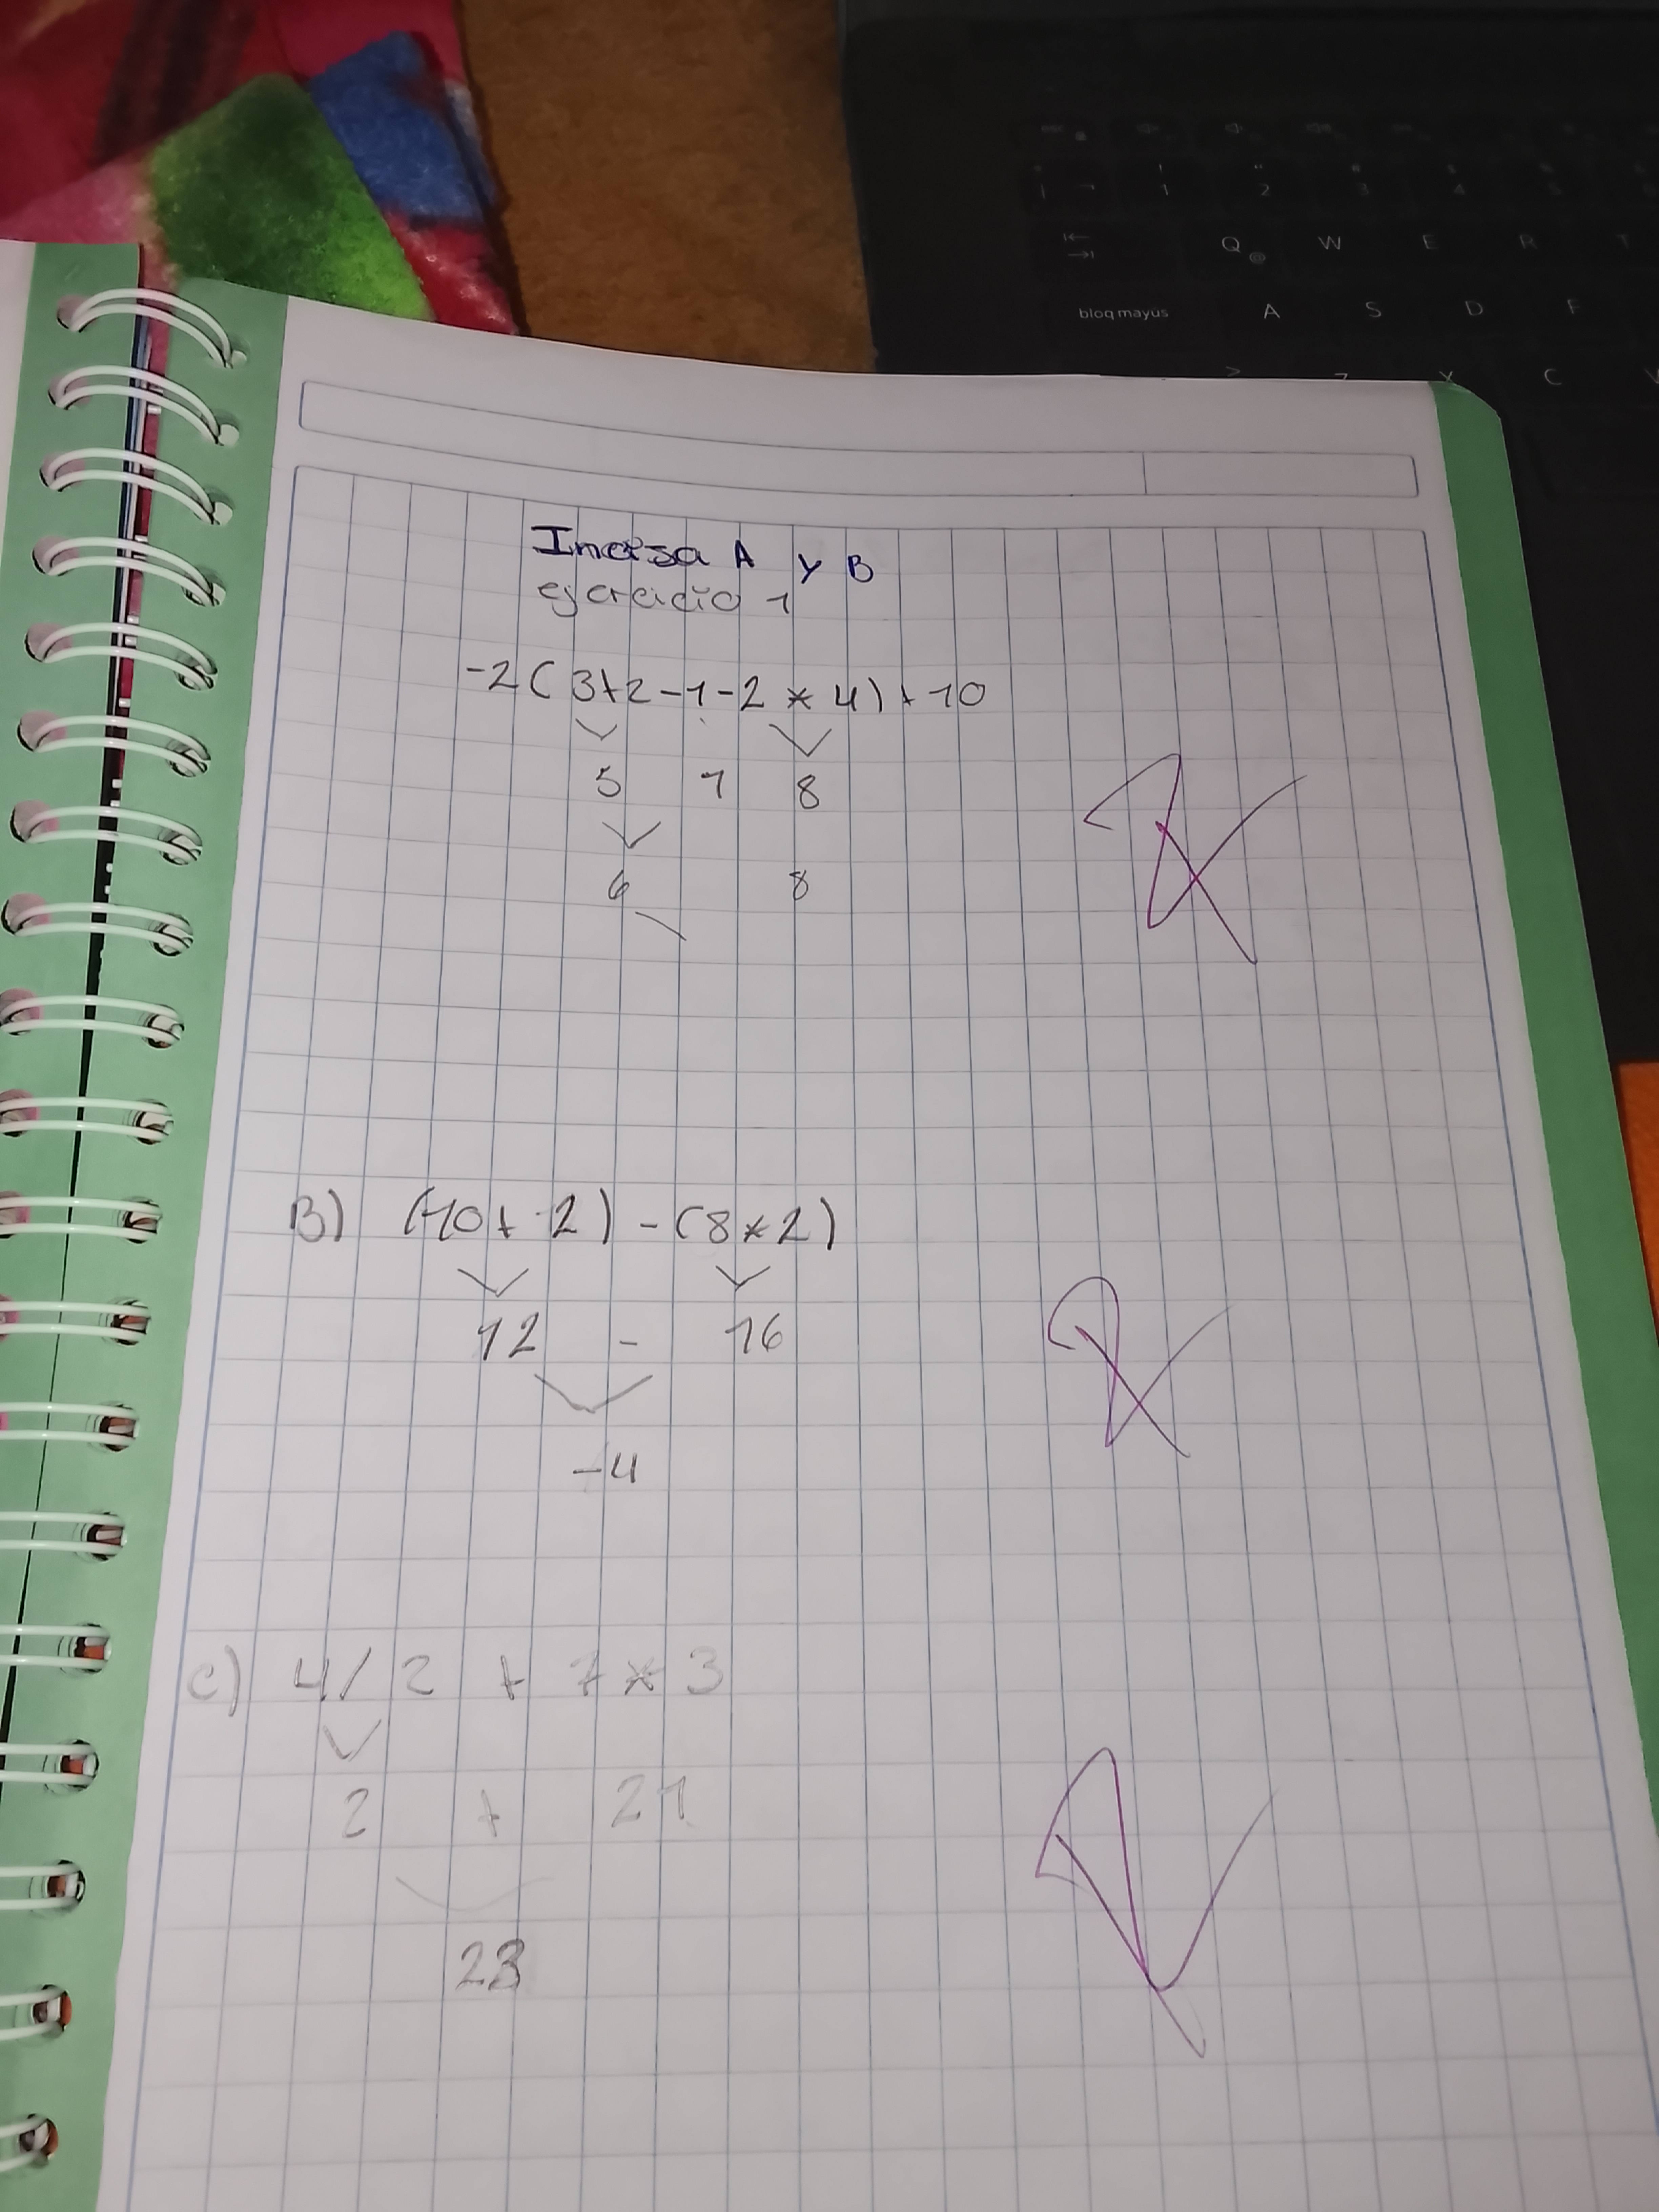 1 2 3 4
Q @ W E R T
bloq mayus A S D F
> Z X C V
Inersa A y B
ejercicio 1
-2(3+2-1-2*4)+10
5 1 8
6 8
B) (10+2)-(8*2)
12 - 16
-4
C) 4/2 + 7*3
2 + 21
23